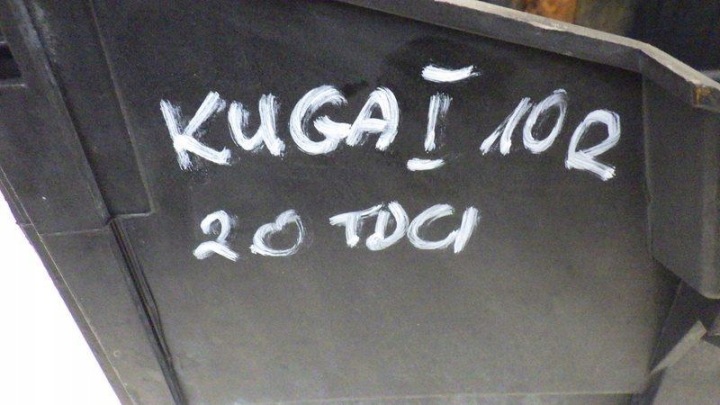 KUGA I 10R
20 TDCI